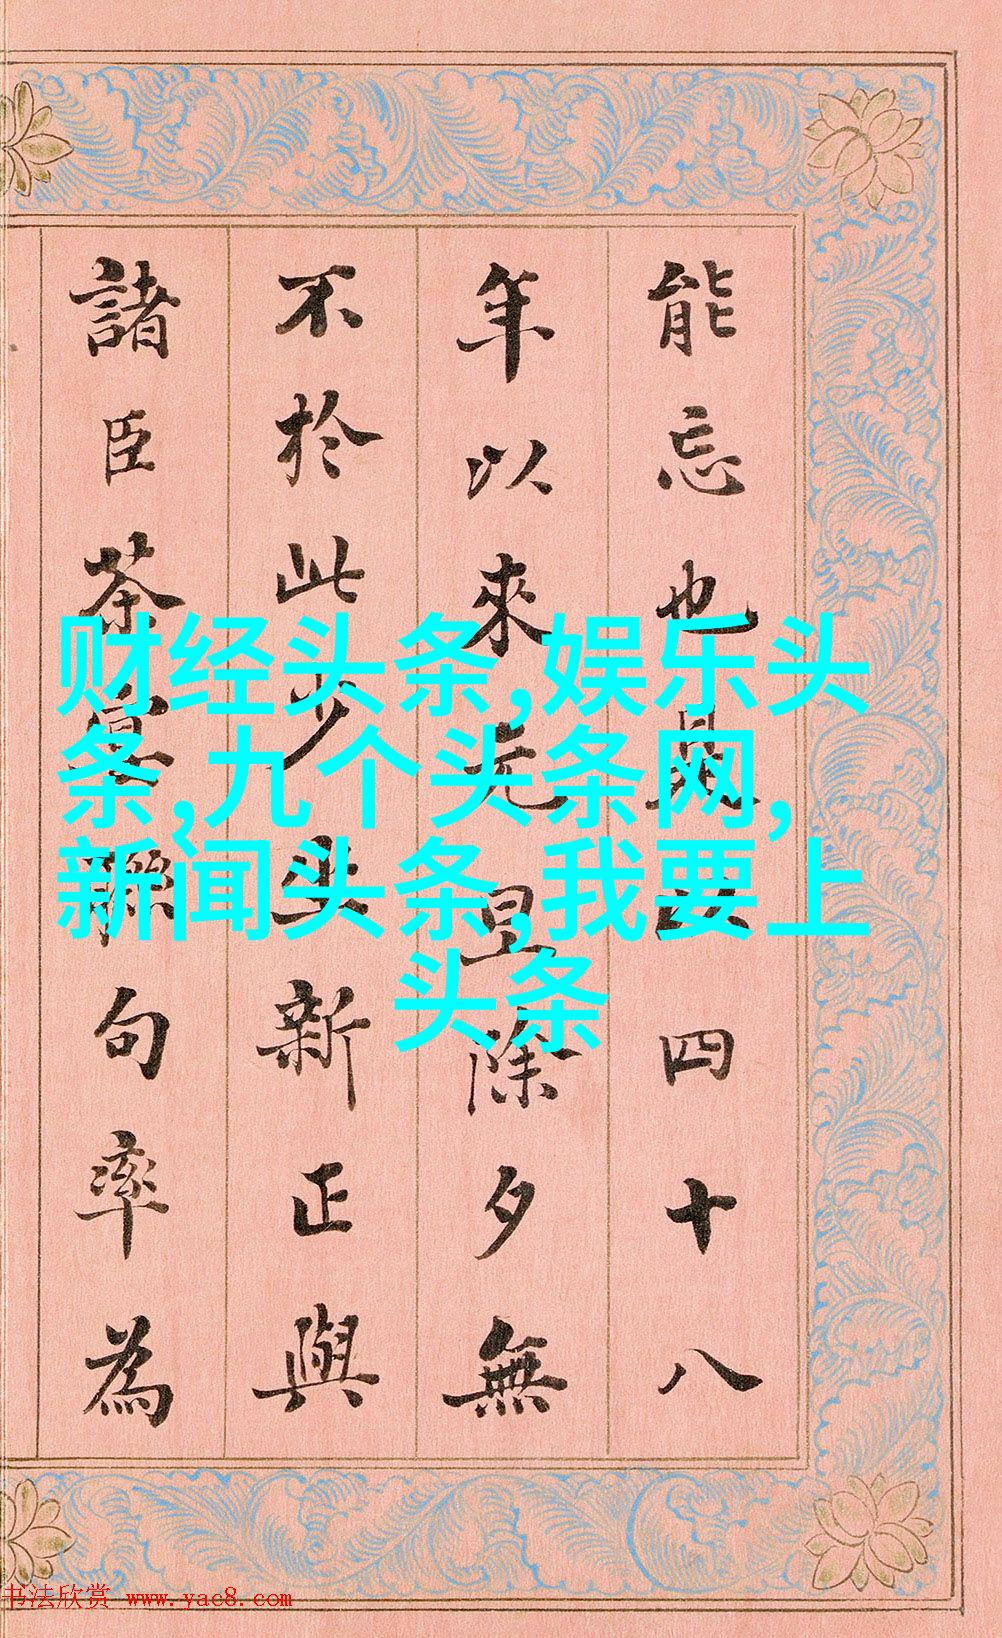 能忘也是以四十八
年以來光昱除夕無
不於此少坐新正與
諸臣茶宴聯句率為
财经头条,娱乐头
条,九个头条网,
新闻头条,我要上
头条
书法欣赏 www.yac8.com